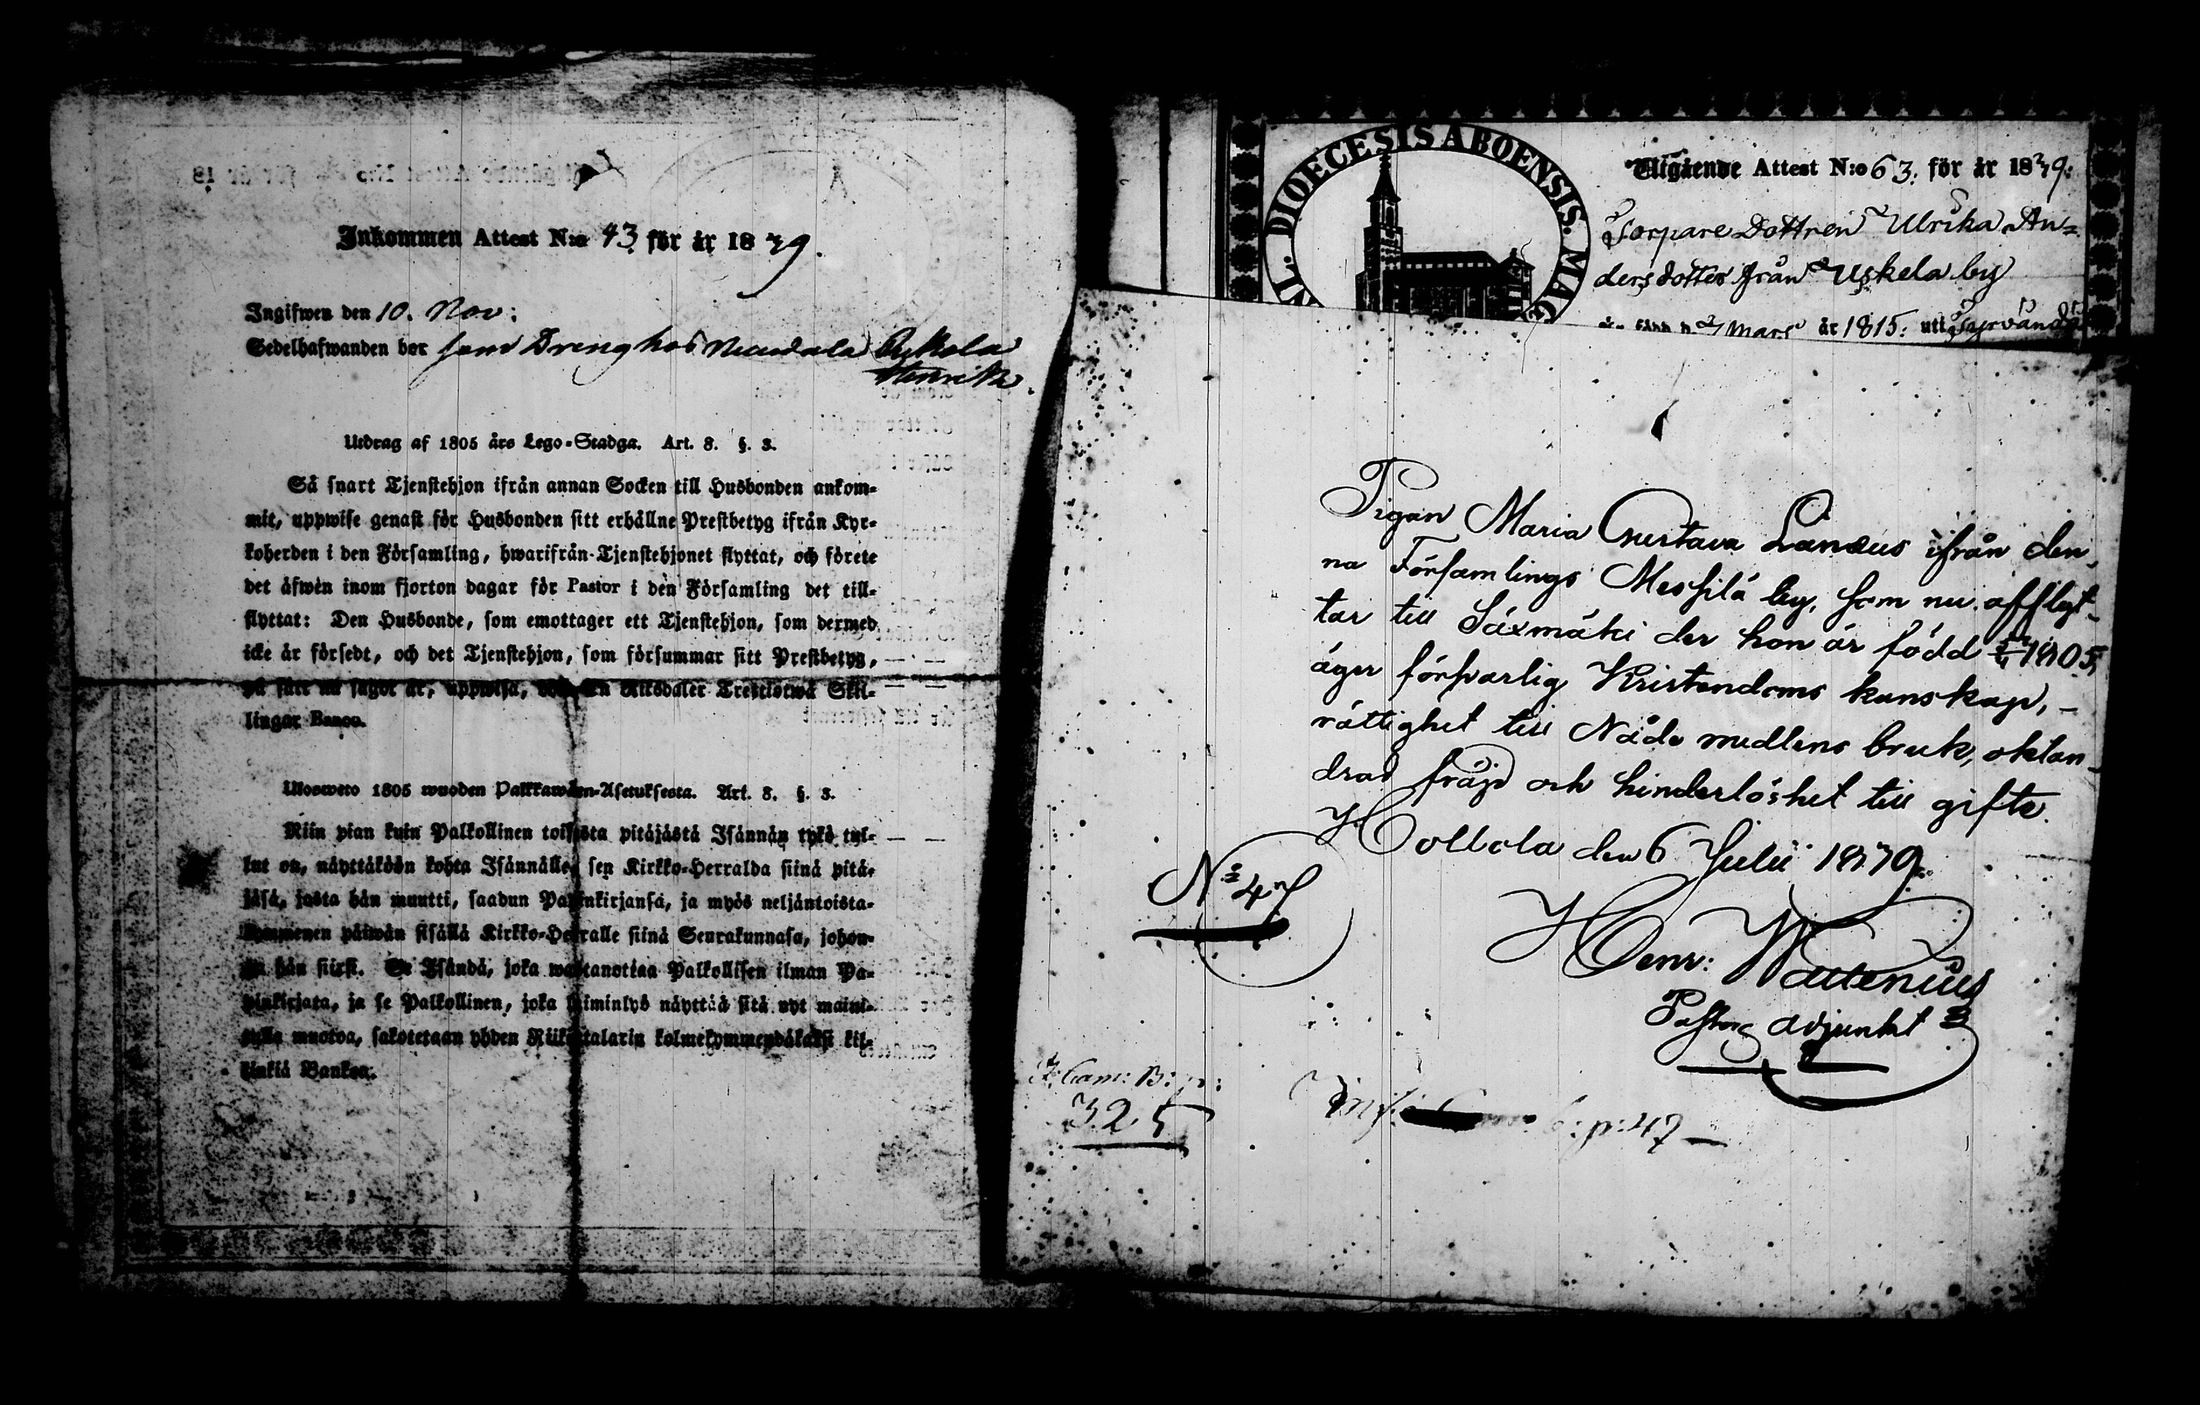 Inkommen Attest N:o 43 för år 1879.
Ingifwen den 10. Nov:
Sedelhafwanden bor som Dreng hos
Henrik
Utdrag af 1805 års Lego-Stadga. Art. 8. §. 3.
Så snart Tjenstehjon ifrån annan Socken till Husbonden ankom-
mit, uppwise genast för Husbonden sitt erhållne Prestbetyg ifrån Kyr-
koherden i den Församling, hwarifrån Tjenstehjonet flyttat, och förete
det äfwen inom fjorton dagar för Pastor i den Församling det till-
flyttat: Den Husbonde, som emottager ett Tjenstehjon, som dermed
icke är försedt, och det Tjenstehjon, som försummar sitt Prestbetyg,
på sätt nu sagdt är, uppwisa, Riksdaler Trettiotwå Skil-
lingar Banco.
Ulosweto 1805 wuoden Palkkawäen-Asetuksesta. Art. 8. §. 3.
Niin pian kuin Palkollinen toisesta pitäjästä Isännän tykö tul-
lut on, näyttäköön kohta Isännälle sen Kirkko-Herralda siinä pitä-
jäsä, josta hän muutti, saadun Papinkirjansa, ja myös neljäntoista-
kymmenen päiwän sisällä Kirkko-Herralle siinä Seurakunnasa, johon-
ga hän siirsi. Se Isändä, joka wastanottaa Palkollisen ilman Pa-
pinkirjata, ja se Palkollinen, joka laiminlyö näyttää sitä nyt maini-
tulla muotoa, sakotetaan yhden Riikintalarin kolmekymmendäkaksi kil-
lingiä Bankoa.
DIOECESIS ABOENSIS. MAG
Utgående Attest N:o 63: för år 1879:
Torpare Dottren Ulrika An=
dersdotter från Uskela by
är född d. 27 Mars år 1815: uti
Pigan Maria Gustava Lanæus ifrån den-
na Församlings Messilä by, som nu afflyt-
tar till Säxmäki der hon är född 1805,
äger försvarlig Kristendoms kunskap, –
rättighet till Nåde medlens bruk, oklan-
drad fräjd och hinderlöshet till gifte.
Hollola den 6 Julii 1879.
N:o 47
Henr: Wallenius
Pastors adjunkt
325
p: 47 –